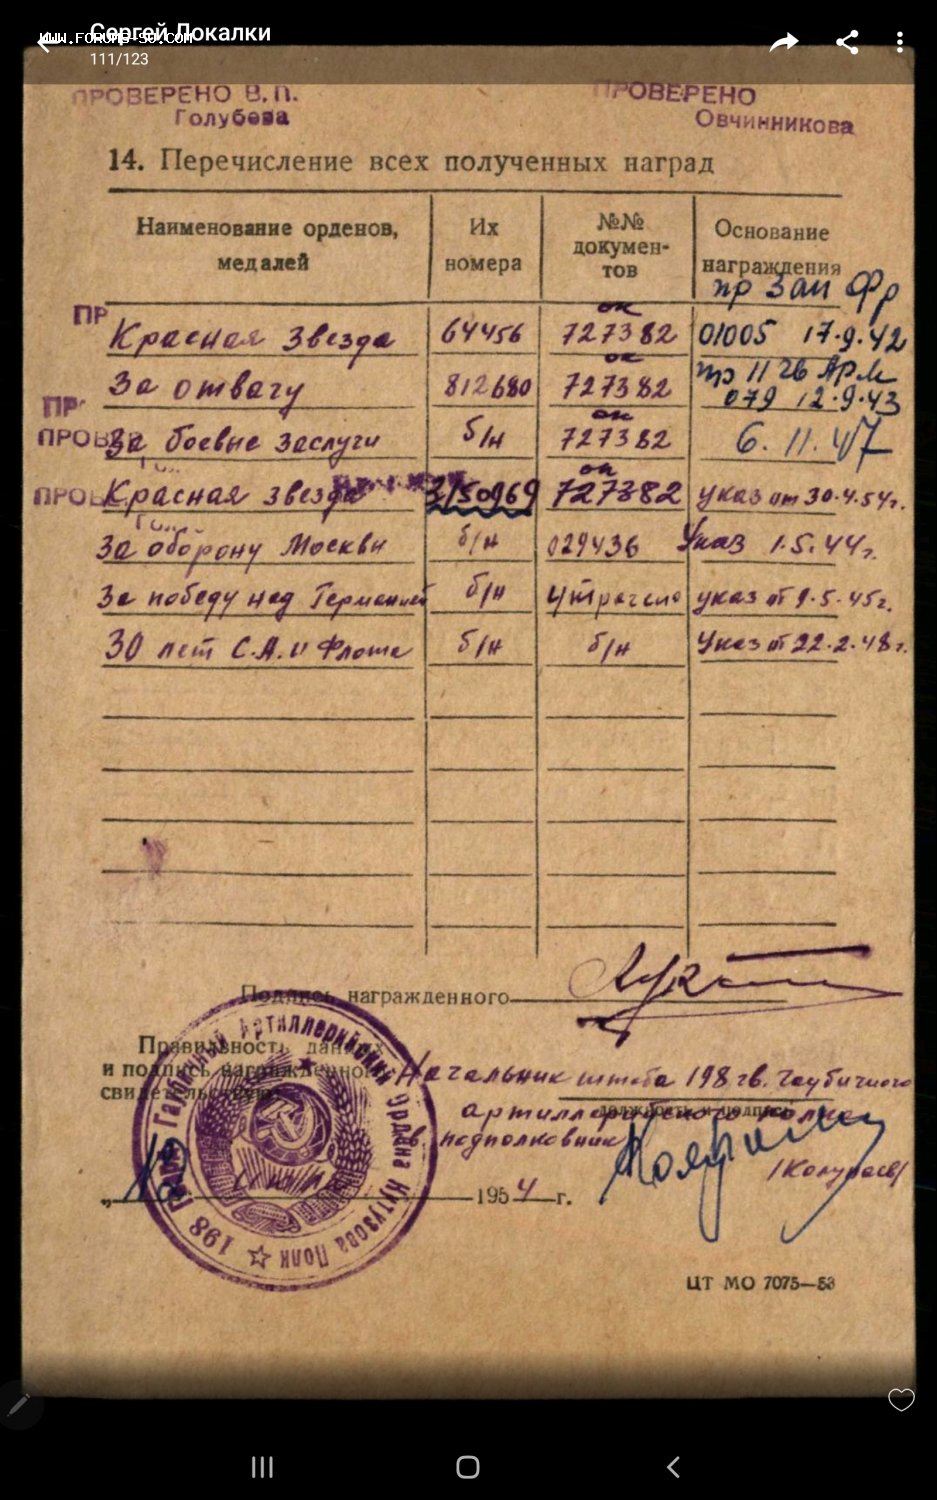 Сергей Локалки
WWW.FORUMS-SU.COM
111/123
ПРОВЕРЕНО В.П.
Голубева
ПРОВЕРЕНО
Овчинникова
14. Перечисление всех полученных наград
Наименование орденов, медалей
Их номера
№№ документов
Основание награждения
пр Зап Фр
ПР Красная Звезда 64456 ок 727382 01005 17.9.42
За отвагу 812680 ок 727382 пр 11 гв Арм 079 12.9.43
ПР
ПРОВЕР За боевые заслуги б/н ок 727382 6.11.47
ПРОВЕ Красная звезда 3150969 ок 727382 указ от 30.4.54г.
За оборону Москвы б/н 029436 Указ 1.5.44г.
За победу над Германией б/н утрачено указ от 9.5.45г.
30 лет С.А. и Флота б/н б/н Указ от 22.2.48г.
Подпись награжденного
Правильность данных
и подпись награжденного
свидетельствую:
Начальник штаба 198 гв. гаубичного
должность и подпись
артиллерийского полка
гв. подполковник
"
195 4 г.
198 Гвард Гаубичный Артиллерийский Ордена Кутузова Полк
ЦТ МО 7075—53